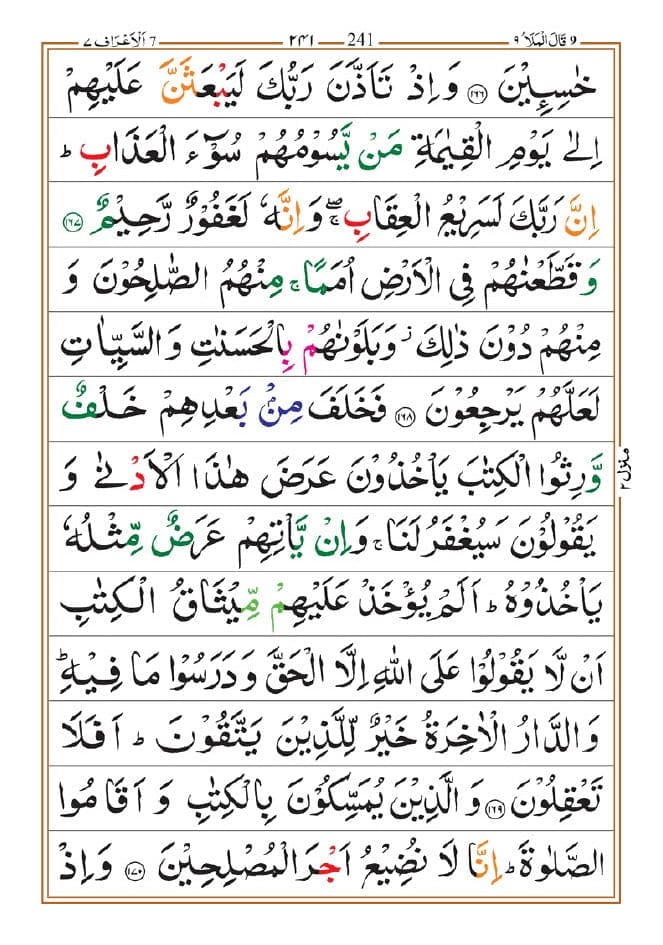 ٩ قَالَ الْمَلَاُ 9 241 ٢٤١ اَلْاَعْرَاف ٧ 7
خٰسِـِٕيْنَ ﴿١٦٦﴾ وَاِذْ تَاَذَّنَ رَبُّكَ لَيَبْعَثَنَّ عَلَيْهِمْ
اِلٰى يَوْمِ الْقِيٰمَةِ مَنْ يَّسُوْمُهُمْ سُوْٓءَ الْعَذَابِ ؕ
اِنَّ رَبَّكَ لَسَرِيْعُ الْعِقَابِ ۚۖ وَاِنَّهٗ لَغَفُوْرٌ رَّحِيْمٌ ﴿١٦٧﴾
وَقَطَّعْنٰهُمْ فِى الْاَرْضِ اُمَمًا ۚ مِنْهُمُ الصّٰلِحُوْنَ وَ
مِنْهُمْ دُوْنَ ذٰلِكَ ؗ وَبَلَوْنٰهُمْ بِالْحَسَنٰتِ وَالسَّيِّاٰتِ
لَعَلَّهُمْ يَرْجِعُوْنَ ﴿١٦٨﴾ فَخَلَفَ مِنْۢ بَعْدِهِمْ خَلْفٌ
وَّرِثُوا الْكِتٰبَ يَاْخُذُوْنَ عَرَضَ هٰذَا الْاَدْنٰى وَ
منزل ٢
يَقُوْلُوْنَ سَيُغْفَرُ لَنَا ۚ وَاِنْ يَّاْتِهِمْ عَرَضٌ مِّثْلُهٗ
يَاْخُذُوْهُ ؕ اَلَمْ يُؤْخَذْ عَلَيْهِمْ مِّيْثَاقُ الْكِتٰبِ
اَنْ لَّا يَقُوْلُوْا عَلَى اللّٰهِ اِلَّا الْحَقَّ وَدَرَسُوْا مَا فِيْهِ ؕ
وَالدَّارُ الْاٰخِرَةُ خَيْرٌ لِّلَّذِيْنَ يَتَّقُوْنَ ؕ اَفَلَا
تَعْقِلُوْنَ ﴿١٦٩﴾ وَالَّذِيْنَ يُمَسِّكُوْنَ بِالْكِتٰبِ وَاَقَامُوا
الصَّلٰوةَ ؕ اِنَّا لَا نُضِيْعُ اَجْرَ الْمُصْلِحِيْنَ ﴿١٧٠﴾ وَاِذْ